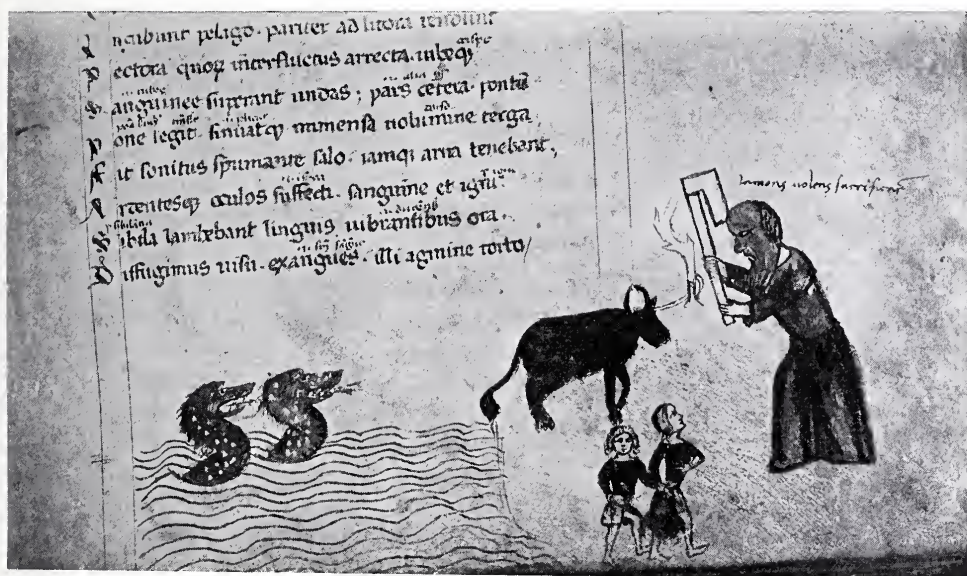 I ncubunt pelago · pariter ad litora tendunt
P ectora quoꝝ inter fluctus arrecta · iubeqꝫ
S anguinee superant undas ; pars cetera · pontū
P one legit · sinuatqꝫ immensa uolumine terga
F it sonitus spumante salo · iamqꝫ arua tenebant ;
A rdentesqꝫ oculos suffecti · sanguine et igni
S ibila lambebant linguis uibrantibus ora ·
D iffugimus uisu · exangues · illi agmine torto /
uolens sacrificare